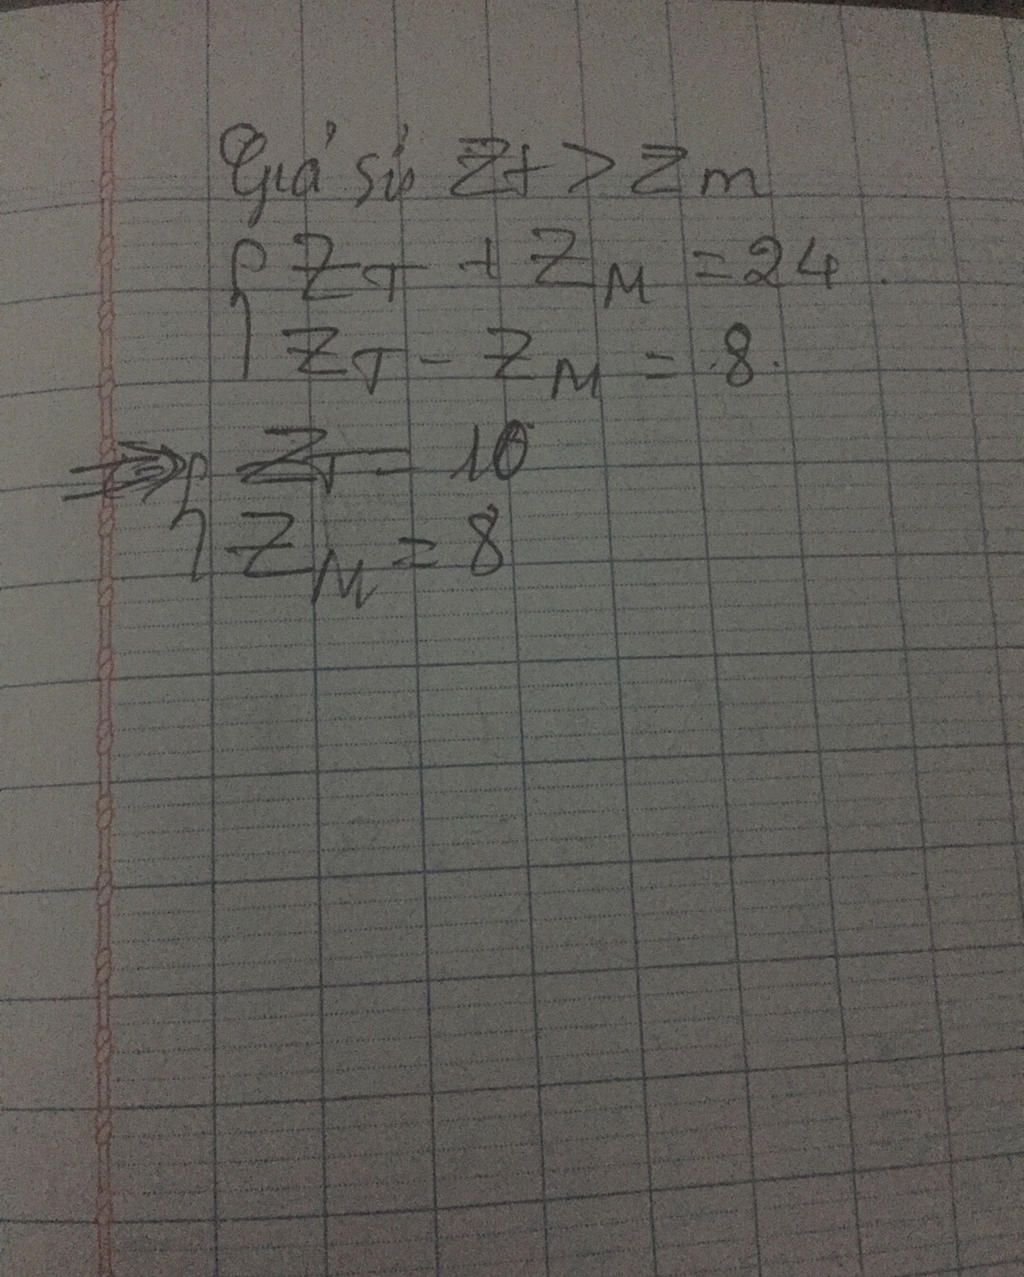 Giả sử Zt > Zm
{ ZT + ZM = 24.
ZT - ZM = 8.
=> { ZT = 10
ZM = 8